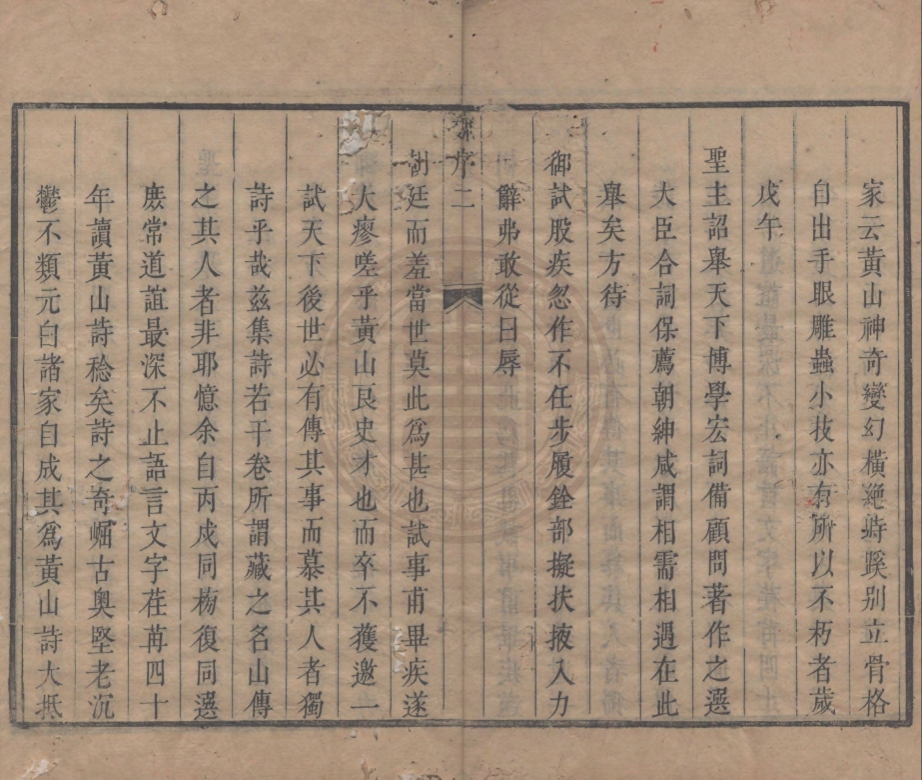 家云黃山神奇變幻橫絶時蹊别立骨格
自出手眼雕蟲小技亦有所以不朽者歲
戊午
聖主詔舉天下博學宏詞備顧問著作之選
大臣合詞保薦朝紳咸謂相需相遇在此
舉矣方待
御試股疾忽作不任步履銓部擬扶掖入力
辭弗敢從曰辱
序二
朝廷而羞當世莫此爲甚也試事甫畢疾遂
大瘳嗟乎黃山良史才也而卒不獲邀一
試天下後世必有傳其事而慕其人者獨
詩乎哉兹集詩若干卷所謂藏之名山傳
之其人者非耶憶余自丙戍同榜復同選
庻常道誼最深不止語言文字荏苒四十
年讀黃山詩稔矣詩之奇崛古奥堅老沉
鬱不類元白諸家自成其爲黃山詩大抵